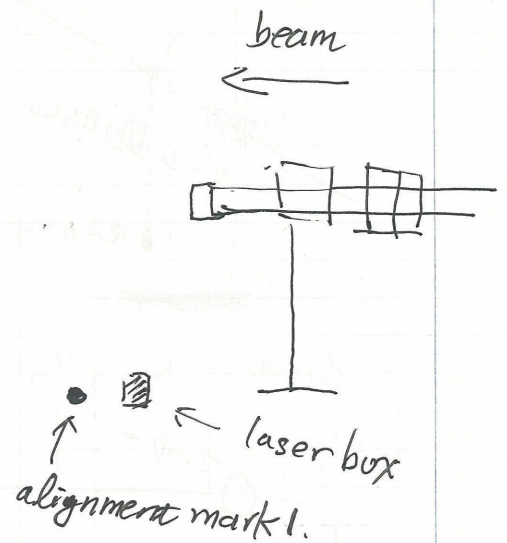 beam
laser box
alignment mark 1.